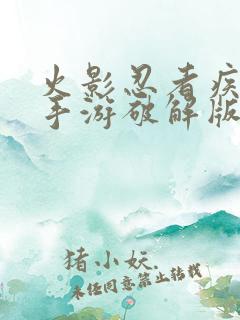 火影忍者疾
手游破解版
猪小妖.
未经同意禁止转载